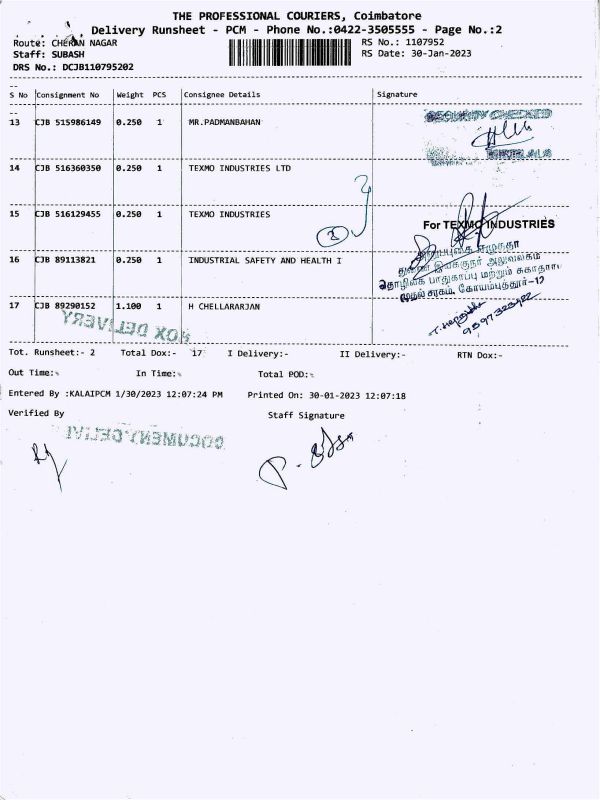 THE PROFESSIONAL COURIERS, Coimbatore
Delivery Runsheet - PCM - Phone No.:0422-3505555 - Page No.:2
Route: CHERAN NAGAR
Staff: SUBASH
DRS No.: DCJB110795202
RS No.: 1107952
RS Date: 30-Jan-2023
S No Consignment No Weight PCS Consignee Details Signature
13 CJB 515986149 0.250 1 MR.PADMANBAHAN
SECURITY CHECKED
14 CJB 516360350 0.250 1 TEXMO INDUSTRIES LTD
15 CJB 516129455 0.250 1 TEXMO INDUSTRIES
For TEXMO INDUSTRIES
16 CJB 89113821 0.250 1 INDUSTRIAL SAFETY AND HEALTH I
துணை இயக்குநர் அலுவலகம்
தொழிலக பாதுகாப்பு மற்றும் சுகாதார
கோயம்புத்தூர்-12
17 CJB 89290152 1.100 1 H CHELLARARJAN
NOX DELIVERY
Tot. Runsheet:- 2 Total Dox:- 17 I Delivery:- II Delivery:- RTN Dox:-
Out Time:- In Time:- Total POD:-
Entered By :KALAIPCM 1/30/2023 12:07:24 PM Printed On: 30-01-2023 12:07:18
Verified By Staff Signature